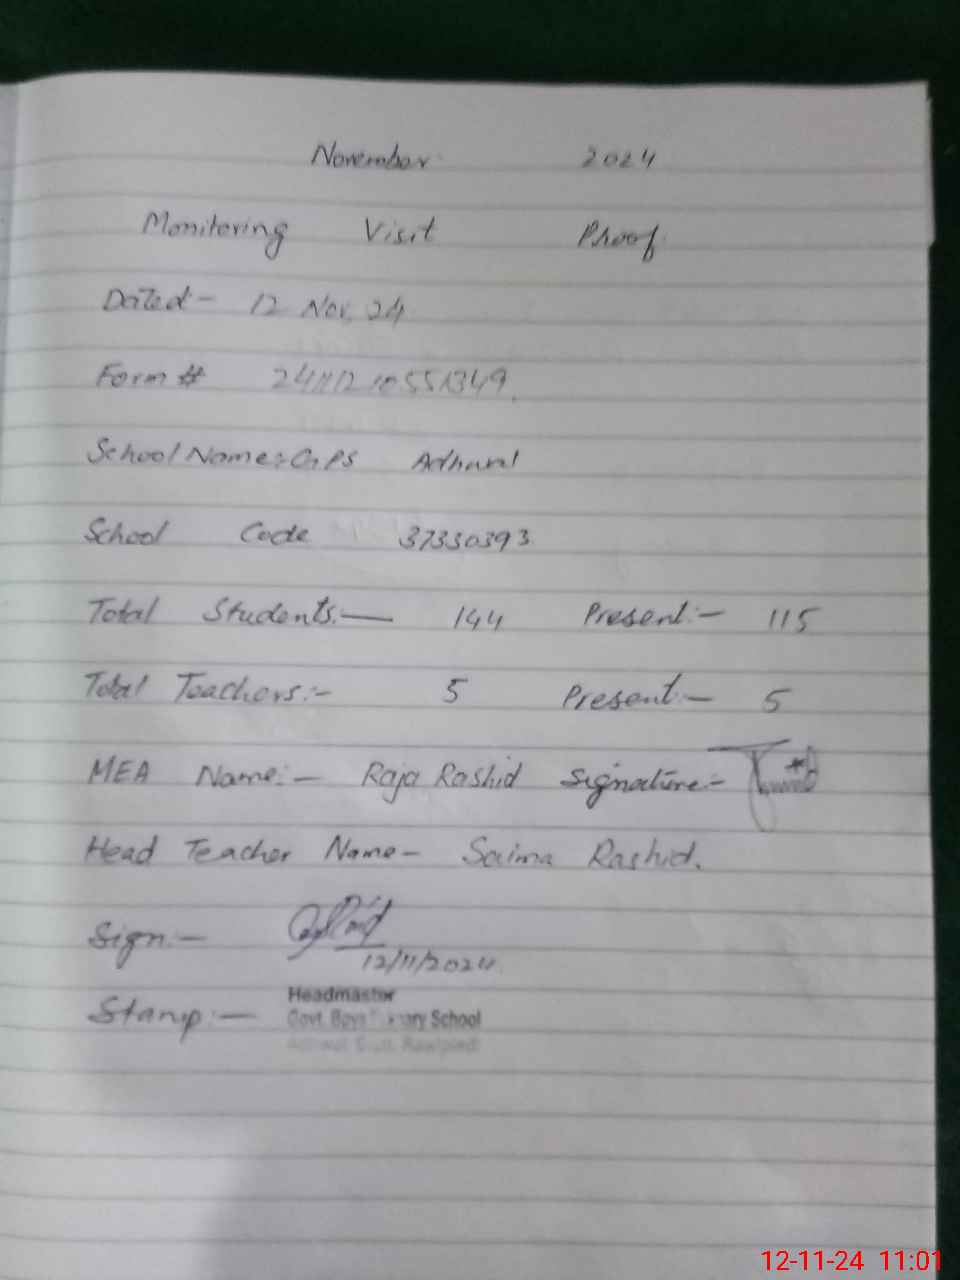 November 2024
Monitoring Visit Proof
Dated:- 12 Nov, 24
Form # 24111210551349
School Name: GPS Adhwal
School Code 37330393
Total Students:— 144 Present:- 115
Total Teachers:- 5 Present:- 5
MEA Name:- Raja Rashid Signature:-
Head Teacher Name- Saima Rashid.
Sign:-
12/11/2024
Stamp:- Headmaster
Govt. Boys Primary School
Rawalpindi
12-11-24 11:01